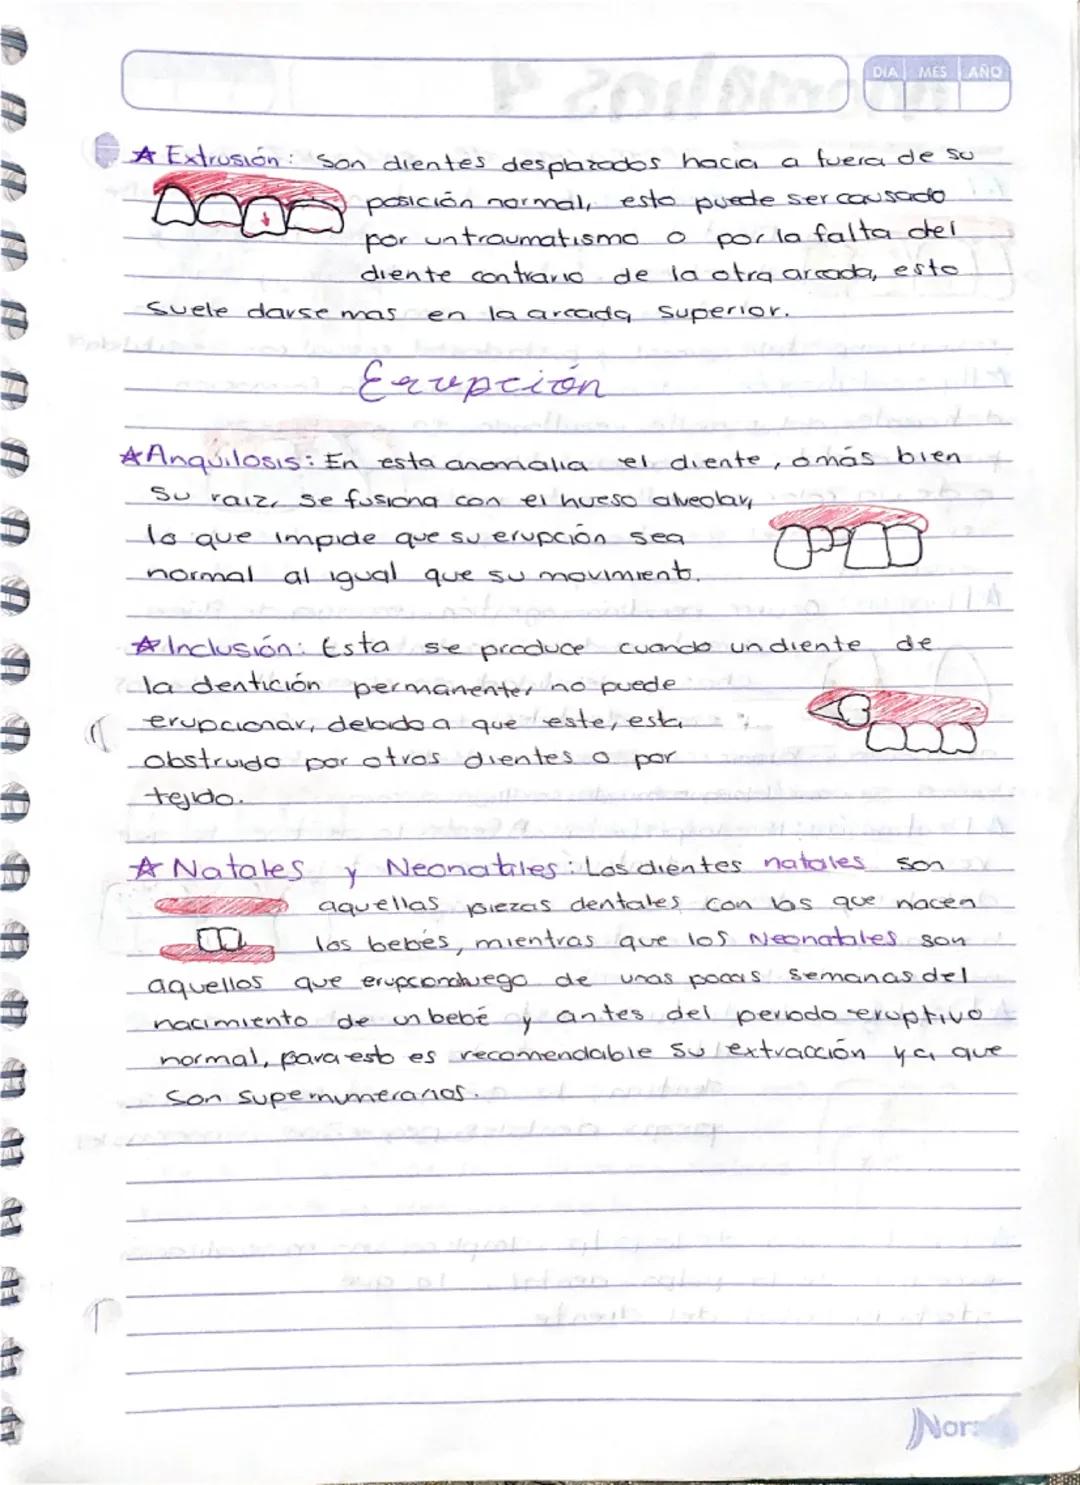 DIA MES AÑO
☆ Extrusión: Son dientes desplazados hacia a fuera de su
posición normal, esto puede ser causado
por un traumatismo o por la falta del
diente contrario de la otra arcada, esto
suele darse mas en la arcada superior.
Erupción
☆ Anquilosis: En esta anomalia el diente, o más bien
su raiz, se fusiona con el hueso alveolar,
lo que impide que su erupción sea
normal al igual que su movimiento.
☆ Inclusión: Esta se produce cuando un diente de
la dentición permanente, no puede
erupcionar, debido a que este, esta
obstruido por otros dientes o por
tejido.
☆ Natales y Neonatales: Los dientes natales son
aquellas piezas dentales con las que nacen
los bebés, mientras que los Neonatales son
aquellos que erupcionan luego de unas pocas semanas del
nacimiento de un bebé y antes del periodo eruptivo
normal, para esto es recomendable su extracción ya que
son supernumerarios.
Nor